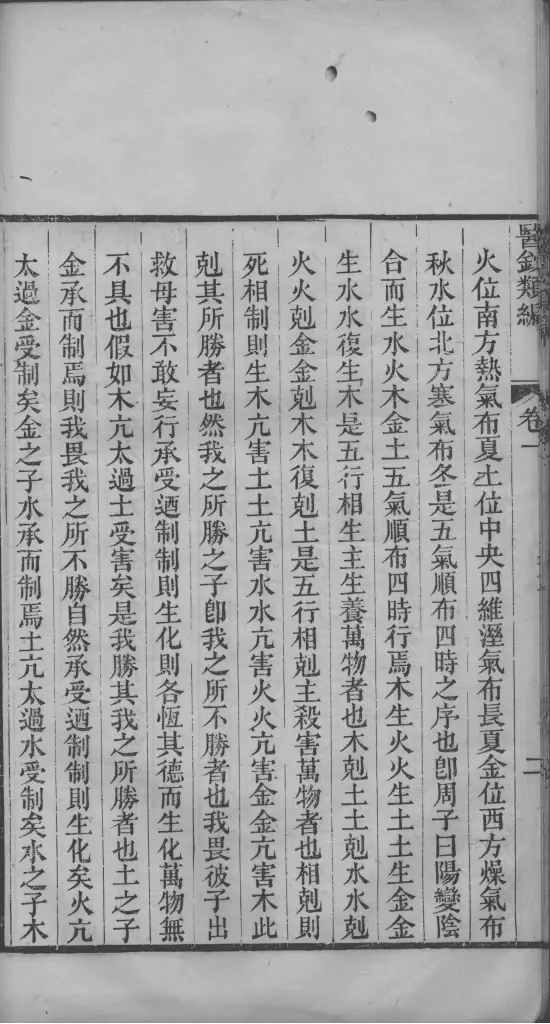 醫鈔類編
卷一
二
火位南方熱氣布夏土位中央四維溼氣布長夏金位西方燥氣布
秋水位北方寒氣布冬是五氣順布四時之序也卽周子曰陽變陰
合而生水火木金土五氣順布四時行焉木生火火生土土生金金
生水水復生木是五行相生主生養萬物者也木剋土土剋水水剋
火火剋金金剋木木復剋土是五行相剋主殺害萬物者也相剋則
死相制則生木亢害土土亢害水水亢害火火亢害金金亢害木此
剋其所勝者也然我之所勝之子卽我之所不勝者也我畏彼子出
救母害不敢妄行承受廼制制則生化則各恆其德而生化萬物無
不具也假如木亢太過土受害矣是我勝其我之所勝者也土之子
金承而制焉則我畏我之所不勝自然承受廼制制則生化矣火亢
太過金受制矣金之子水承而制焉土亢太過水受制矣水之子木